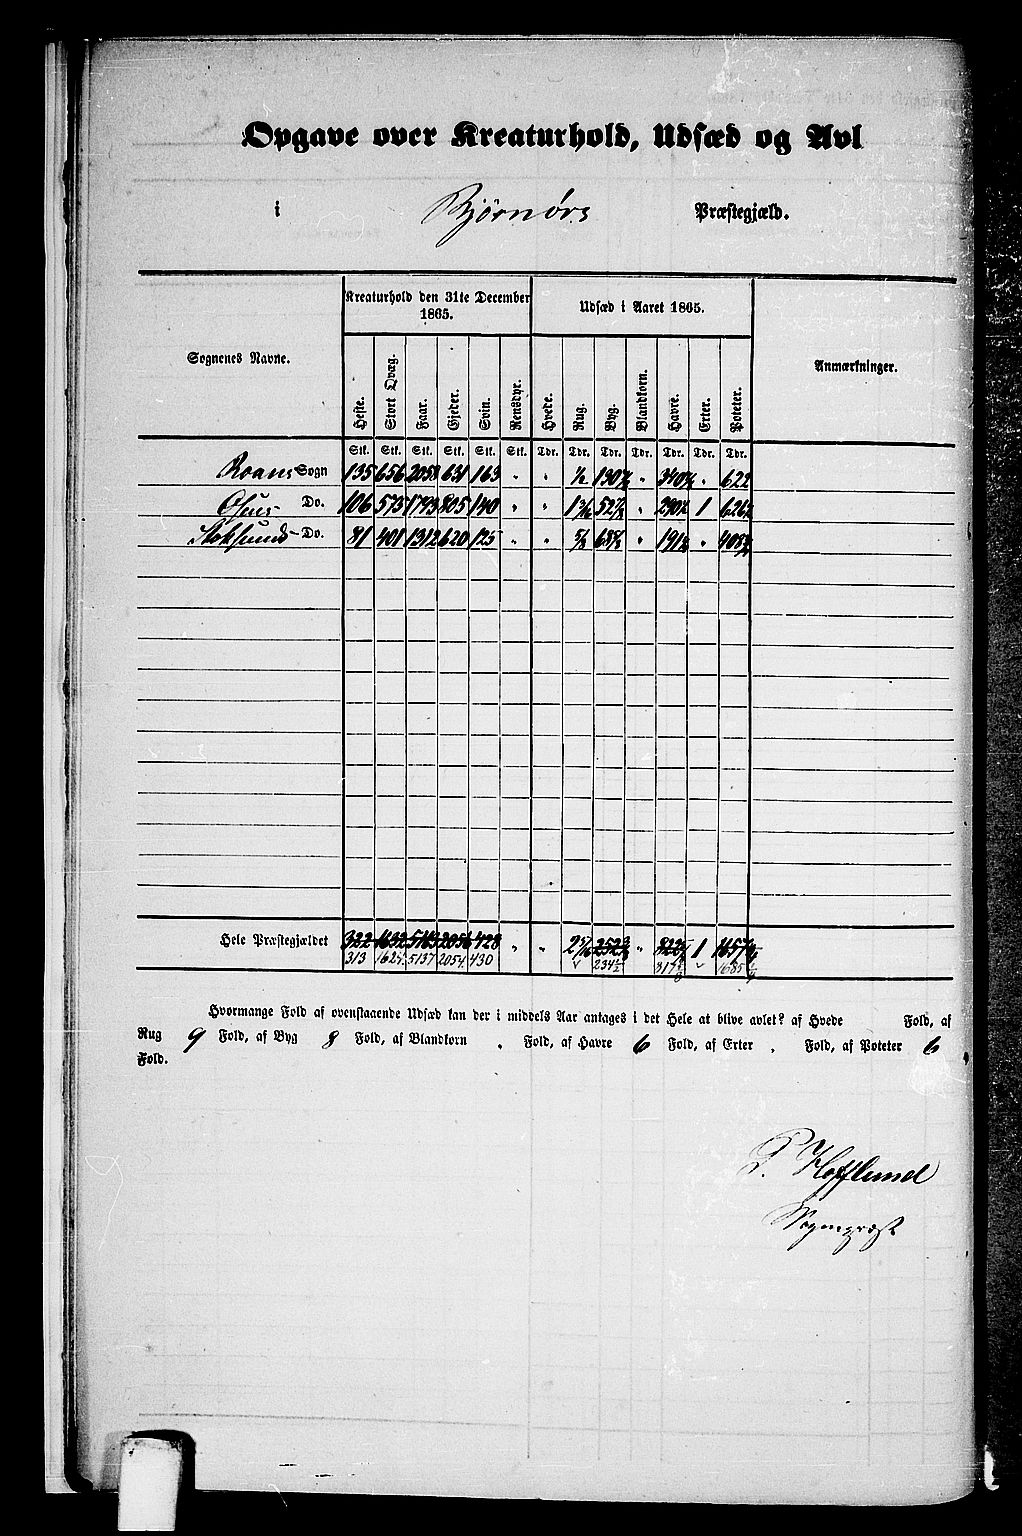 Opgave over Kreaturhold, Udsæd og Avl
i Bjørnørs Præstegjæld.
Sognenes Navne.
Kreaturhold den 31te December 1865.
Udsæd i Aaret 1865.
Anmærkninger.
Heste. Stort Qvæg. Faar. Gjeder. Svin. Rensdyr. Hvede. Rug. Byg. Blandkorn. Havre. Erter. Poteter.
Stk. Stk. Stk. Stk. Stk. Stk. Tdr. Tdr. Tdr. Tdr. Tdr. Tdr. Tdr.
Roans Sogn 135 656 2058 631 163 " " " " 622
Osens Do. 106 575 1793 805 140 " " " 1
Stoksunds Do. 81 401 1312 620 125 " " " "
Hele Præstegjældet 322 1632 5163 2056 428 " " " 1
313 5137 2054 430 234½
Hvormange Fold af ovenstaaende Udsæd kan der i middels Aar antages i det Hele at blive avlet? af Hvede Fold, af
Rug 9 Fold, af Byg 8 Fold, af Blandkorn " Fold, af Havre 6 Fold, af Erter " Fold, af Poteter 6
Fold.
P. Hofflund
Sognepræst